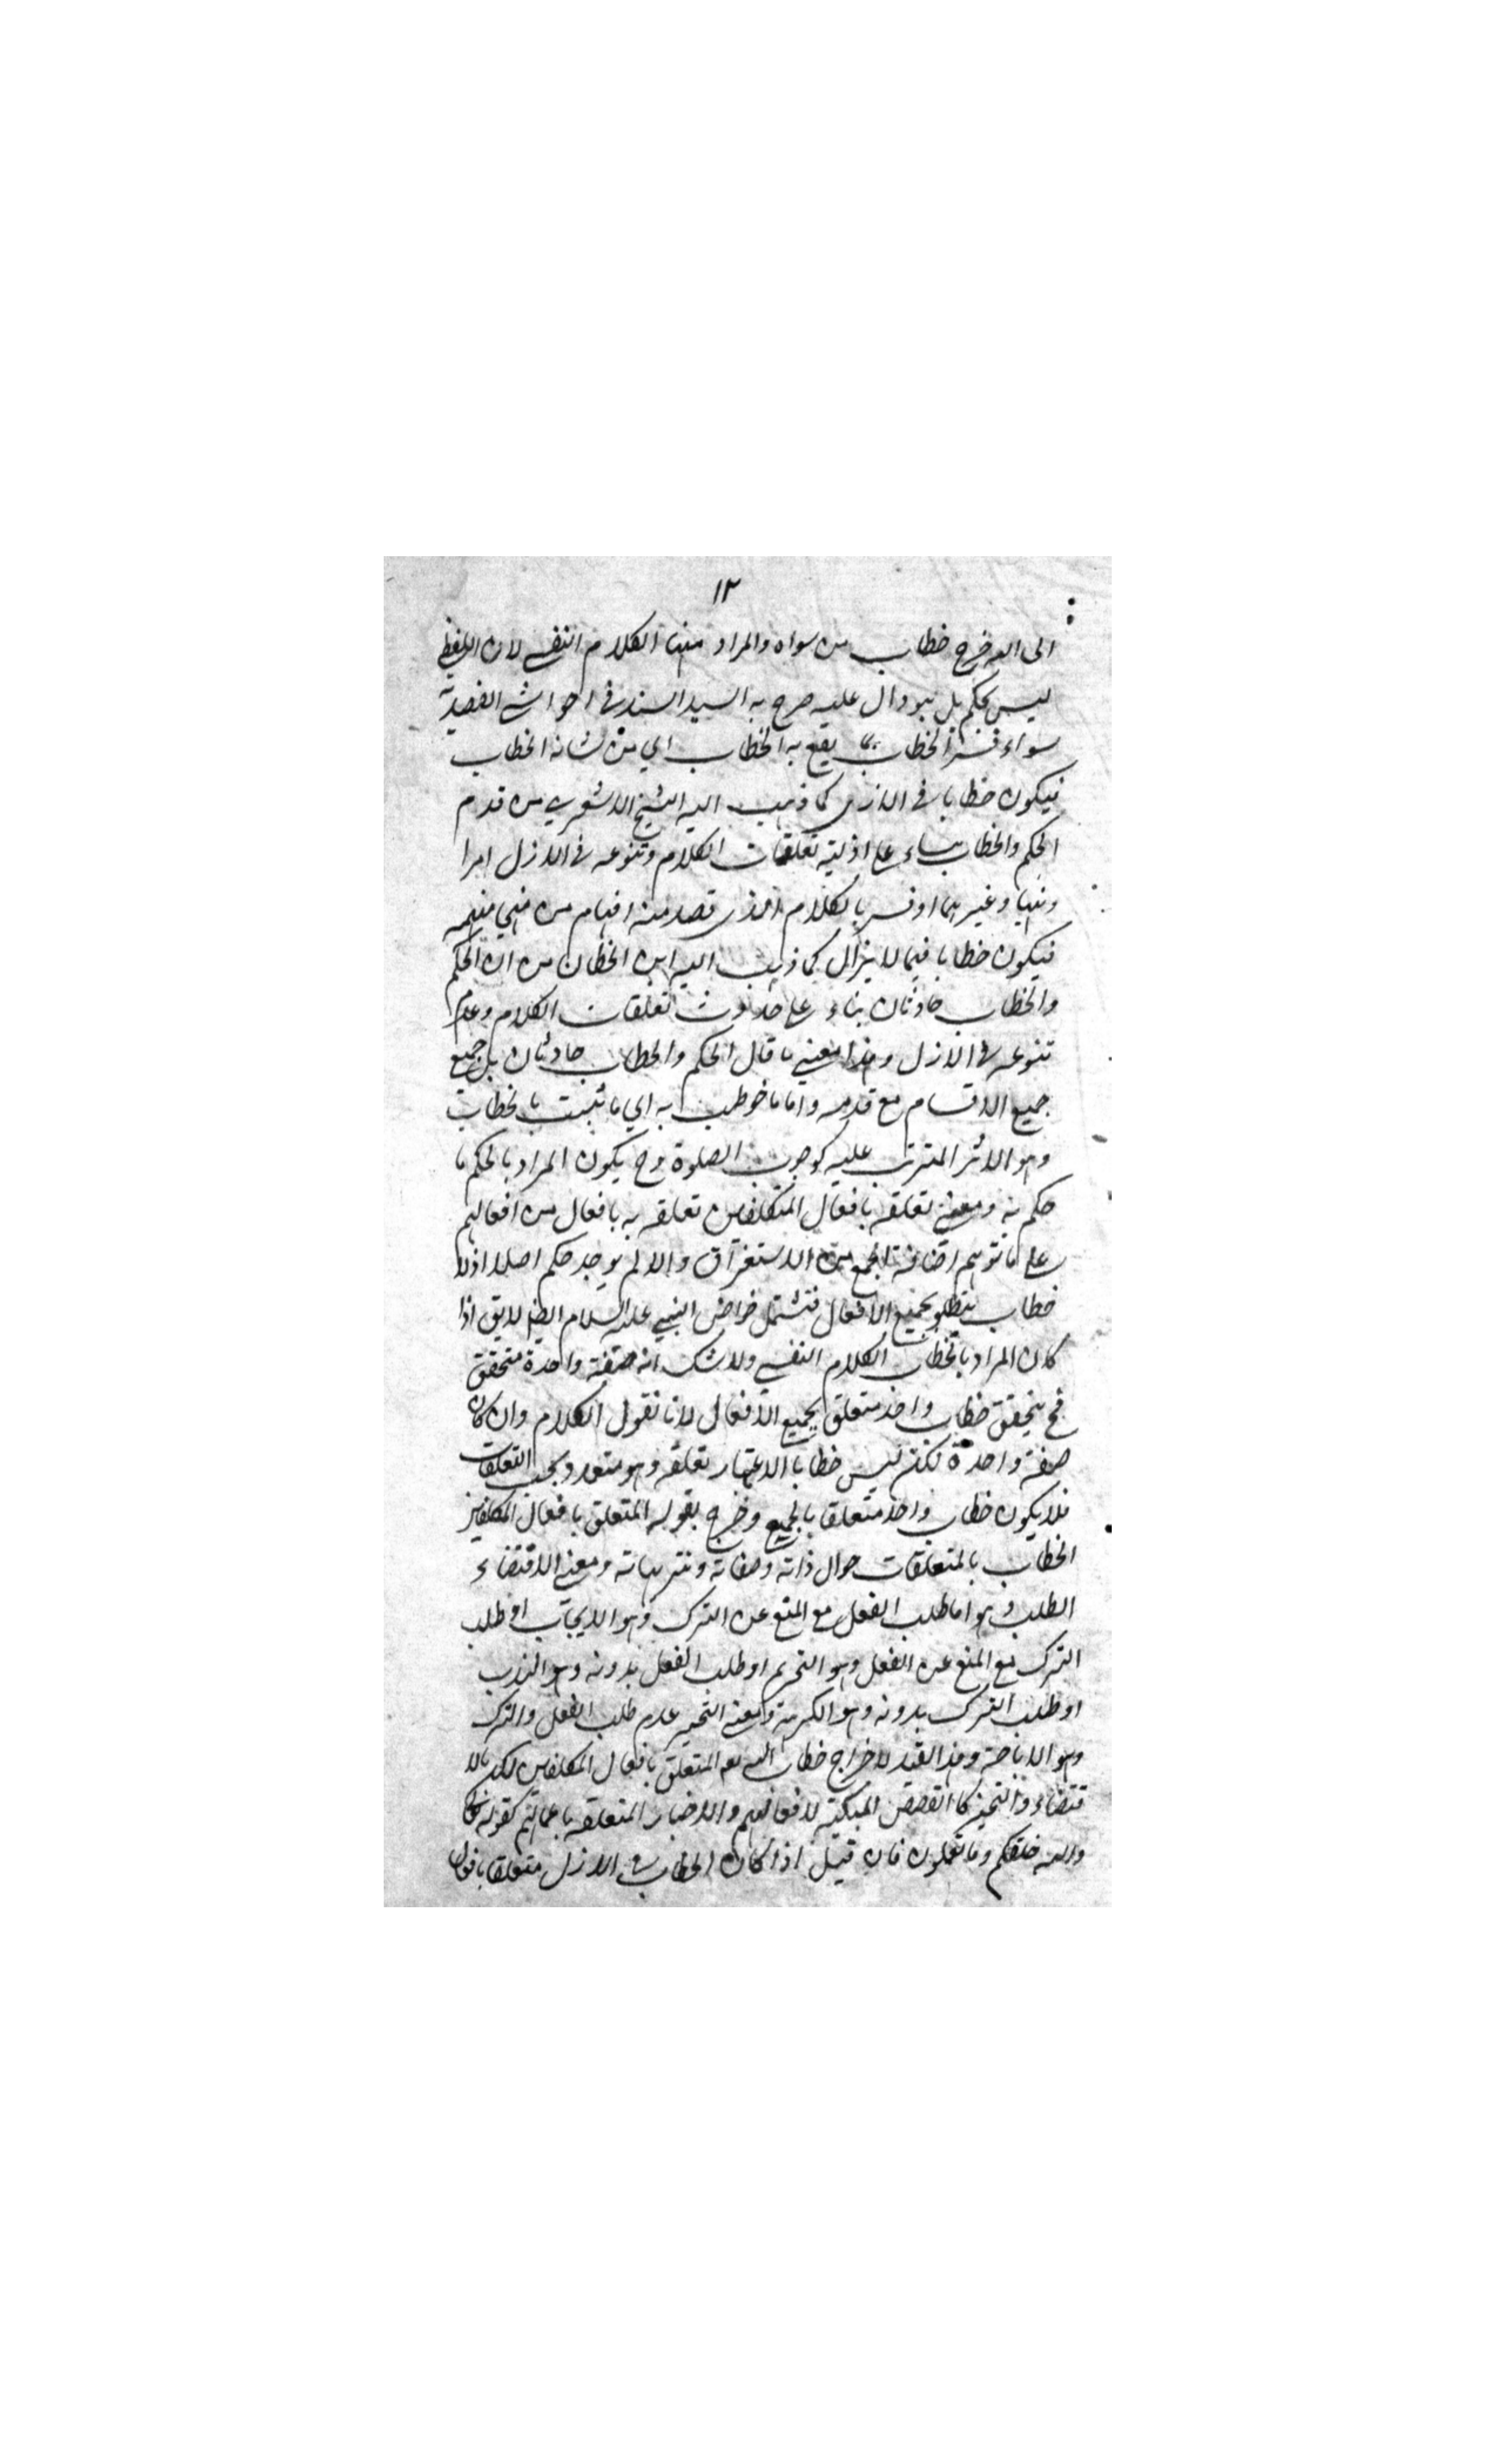 ١٢
الى الله خرج خطاب من سواه والمراد منها الكلام النفسي لان اللفظي
ليس بحكم بل هو دال عليه صرح به السيد السند في احواشي العضدية
سواء فسر الخطاب بما يقع به الخطاب اي من شانه الخطاب
فيكون خطابا في الازل كما ذهب اليه الشيخ الاشعري من قدم
الحكم والخطاب بناء على ازلية تعلقات الكلام وتنوعه في الازل امرا
ونهيا وغيرهما او فسر بالكلام الذي قصد منه افهام من
فيكون خطابا فيما لا يزال كما ذهب اليه ابن القطان من ان الحكم
والخطاب حادثان بناء على حدوث تعلقات الكلام وعدم
تنوعه في الازل وهذا معنى ما قال الحكم والخطاب حادثان بل جميع
جميع الاقسام مع قدمه واما ما خوطب به اي ما ثبت بالخطاب
وهو الاثر المترتب عليه كوجوب الصلوة وح يكون المراد بالحكم ما
حكم به ومعنى تعلقه بافعال المتكلفين تعلقه به بافعال من افعالهم
على ما توهم اضافة الجمع من الاستغراق والا لم يوجد حكم اصلا اذ لا
خطاب يتعلق بجميع الافعال فتشتمل خواص النبي عليه السلام ايضا لا يق اذا
كان المراد بالخطاب الكلام النفسي ولا شك انه صفة واحدة متحقق
فح يتحقق خطاب واحد متعلق بجميع الافعال لانا نقول الكلام وان كان
صفة واحدة لكنه ليس خطابا الا باعتبار تعلقه وهو متعدد بحسب التعلقات
فلا يكون خطاب واحد متعلقا بالجميع وخرج بقوله المتعلق بافعال المكلفين
الخطاب بالمتعلقات حوال ذاته وصفاته وتنزيهاته ومعنى الاقتضاء
الطلب وهو اما طلب الفعل مع المنع عن الترك وهو الايجاب او طلب
الترك مع المنع عن الفعل وهو التحريم او طلب الفعل بدونه وهو الندب
او طلب الترك بدونه وهو الكرهة ومعنى التخيير عدم طلب الفعل والترك
وهو الاباحة وهذا القيد لاخراج خطاب الله تع المتعلق بافعال المكلفين لكن بالا
قتضاء والتخيير كا القصص المبينة لافعالهم والاخبار المتعلقة باعمالهم كقوله تعالى
والله خلقكم وما تعملون فان قيل اذا كان الخطاب في الازل متعلقا بافعال